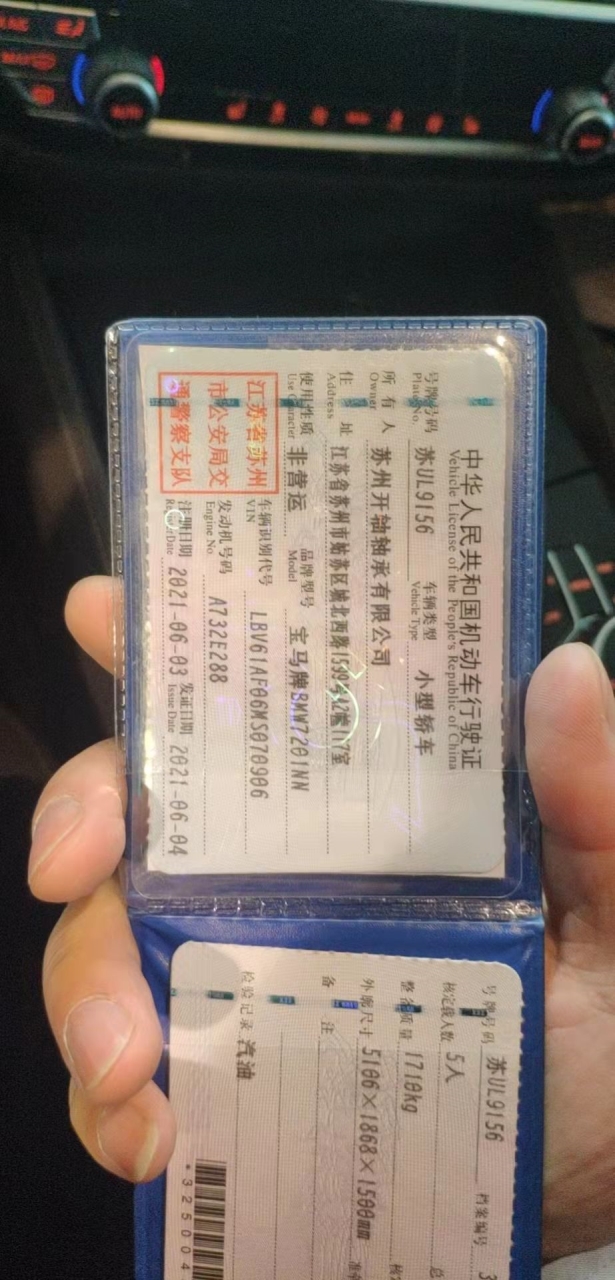 中华人民共和国机动车行驶证
Vehicle License of the People's Republic of China
号牌号码 苏UL9156 车辆类型 小型轿车
Plate No. Vehicle Type
所有人 苏州开轴轴承有限公司
Owner
住址 江苏省苏州市姑苏区城北西路1599号2幢117室
Address
使用性质 非营运 品牌型号 宝马牌BMW7201NN
Use Character Model
江苏省苏州
市公安局交
通警察支队
车辆识别代号 LBV61AF06MS070906
VIN
发动机号码 A732E288
Engine No.
注册日期 2021-06-03 发证日期 2021-06-04
Register Date Issue Date
号牌号码 苏UL9156 档案编号 3
核定载人数 5人 总
整备质量 1710kg 核
外廓尺寸 5106×1868×1500mm 准
备注
检验记录 汽油
*325004